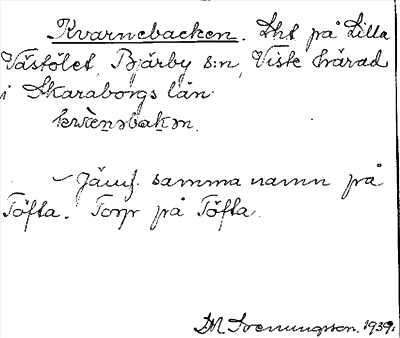 Kvarnebacken. Lht på Lilla
Västölet, Bjärby s:n, Viste härad
i Skaraborgs län.
Jämf. samma namn på
Töfta. Torp på Töfta.
Svenungsson. 1939.